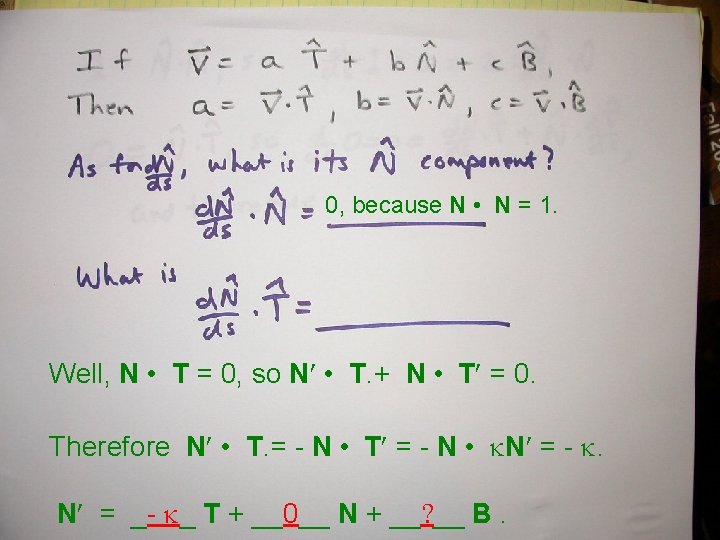 If V⃗ = a T̂ + b N̂ + c B̂,
Then a = V⃗·T̂, b = V⃗·N̂, c = V⃗·B̂
As for dN̂/ds, what is its N̂ component?
dN̂/ds · N̂ = 0, because N • N = 1.
What is
dN̂/ds · T̂ = ________
Well, N • T = 0, so N′ • T.+ N • T′ = 0.
Therefore N′ • T.= - N • T′ = - N • κN′ = - κ.
N′ = _- κ_ T + __0__ N + __?__ B .